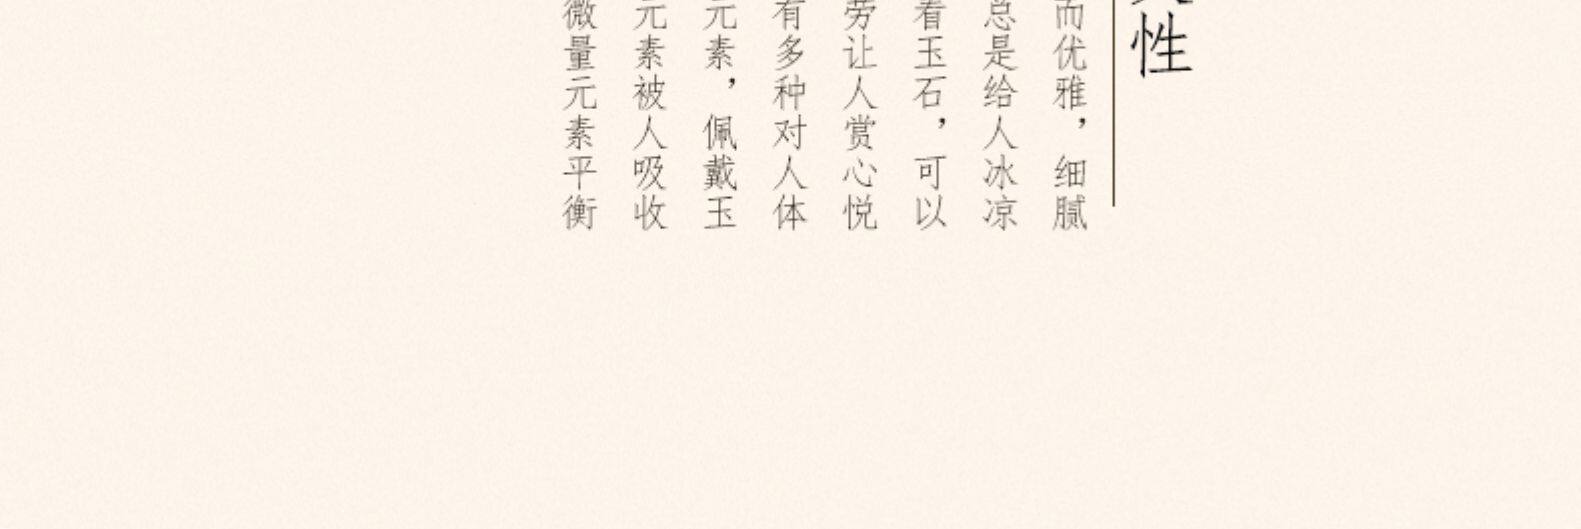 性
而优雅，细腻
总是给人冰凉
看玉石，可以
劳让人赏心悦
有多种对人体
元素，佩戴玉
元素被人吸收
微量元素平衡